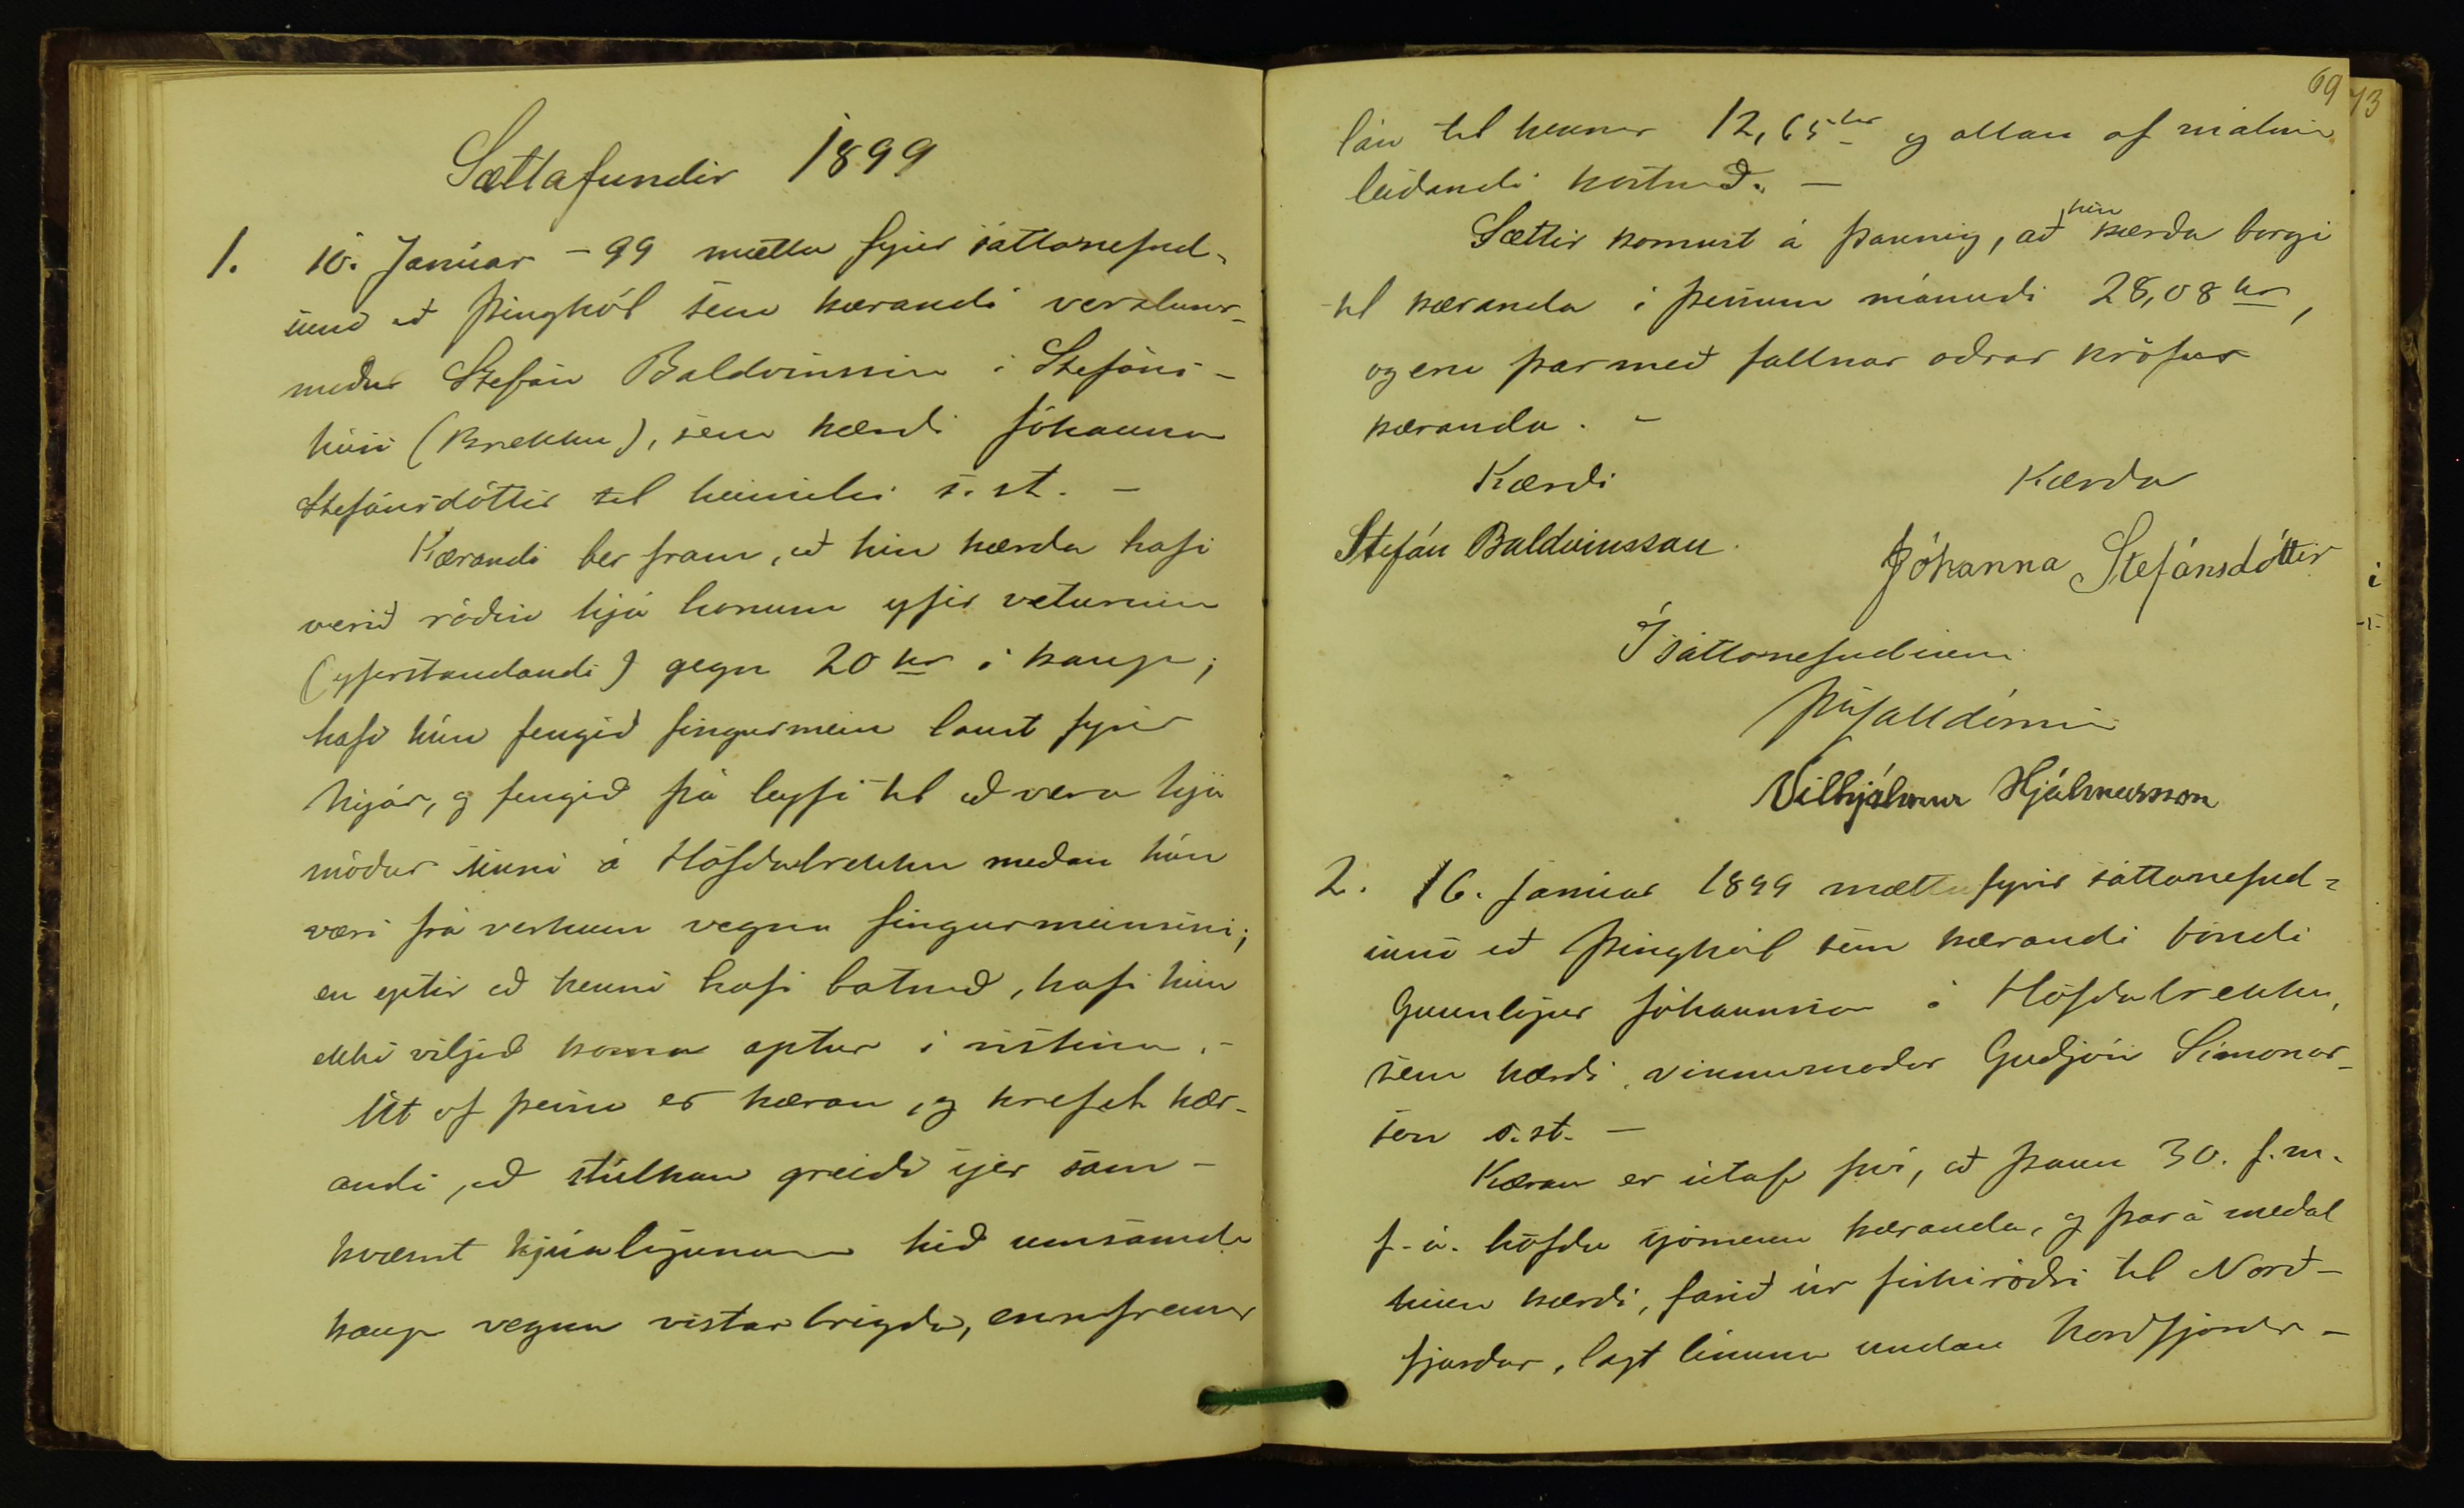 Sættafundir 1899
1. 10. Janúar -99 mættu fyrir sáttanefnd-
inni að Þinghól sem kærandi verzlunar-
maður Stefán Baldvinsson í Stefáns-
húsi (Brekku), sem kærði Jóhanna
Stefánsdóttir til heimilis s. st. -
Kærandi ber fram, að hin kærða hafi
verið ráðin hjá honum yfir veturinn
(yfirstandandi) gegn 20 kr í kaup;
hafi hún fengið fingurmein laust fyrir
nýár, og fengið þá leyfi til að vera hjá
móður sinni á Höfðabrekku meðan hún
væri frá verkum vegna fingurmeinsins;
en eptir að henni hafi batnað, hafi hún
ekki viljað koma aptur í vistina. -
Út af þessu er kæran, og krefst kær-
andi, að stúlkan greiði sjer sam-
kvæmt hjúalögunum hið umsamda
kaup vegna vistarbrigða, ennfremur
69
73
lán til hennar 12,65 kr og allan af málinu
leiðandi kostnað. -
Sættir komust á þannig, að hin kærða borgi
til kæranda í þessum mánuði 28,08 kr,
og eru þar með fallnar aðrar kröfur
kæranda. -
Kærði
Kærða
Stefán Baldvinsson.
Jóhanna Stefánsdóttir
Í sáttanefndinni
Vilhjálmur Hjálmarsson
2. 16. Janúar 1899 mættu fyrir sáttanefnd-
inni að Þinghól sem kærandi bóndi
Gunnlögur Jóhannsson á Höfðabrekku,
sem kærði vinnumaður Guðjón Símonar-
son s. st. -
Kæran er útaf því, að þann 30. f. m.
f. á. höfðu sjómenn kæranda, og þar á meðal
hinn kærði, farið úr fiskiróðri til Norð-
fjarðar, lagt línuna undan Norðfjarðar-